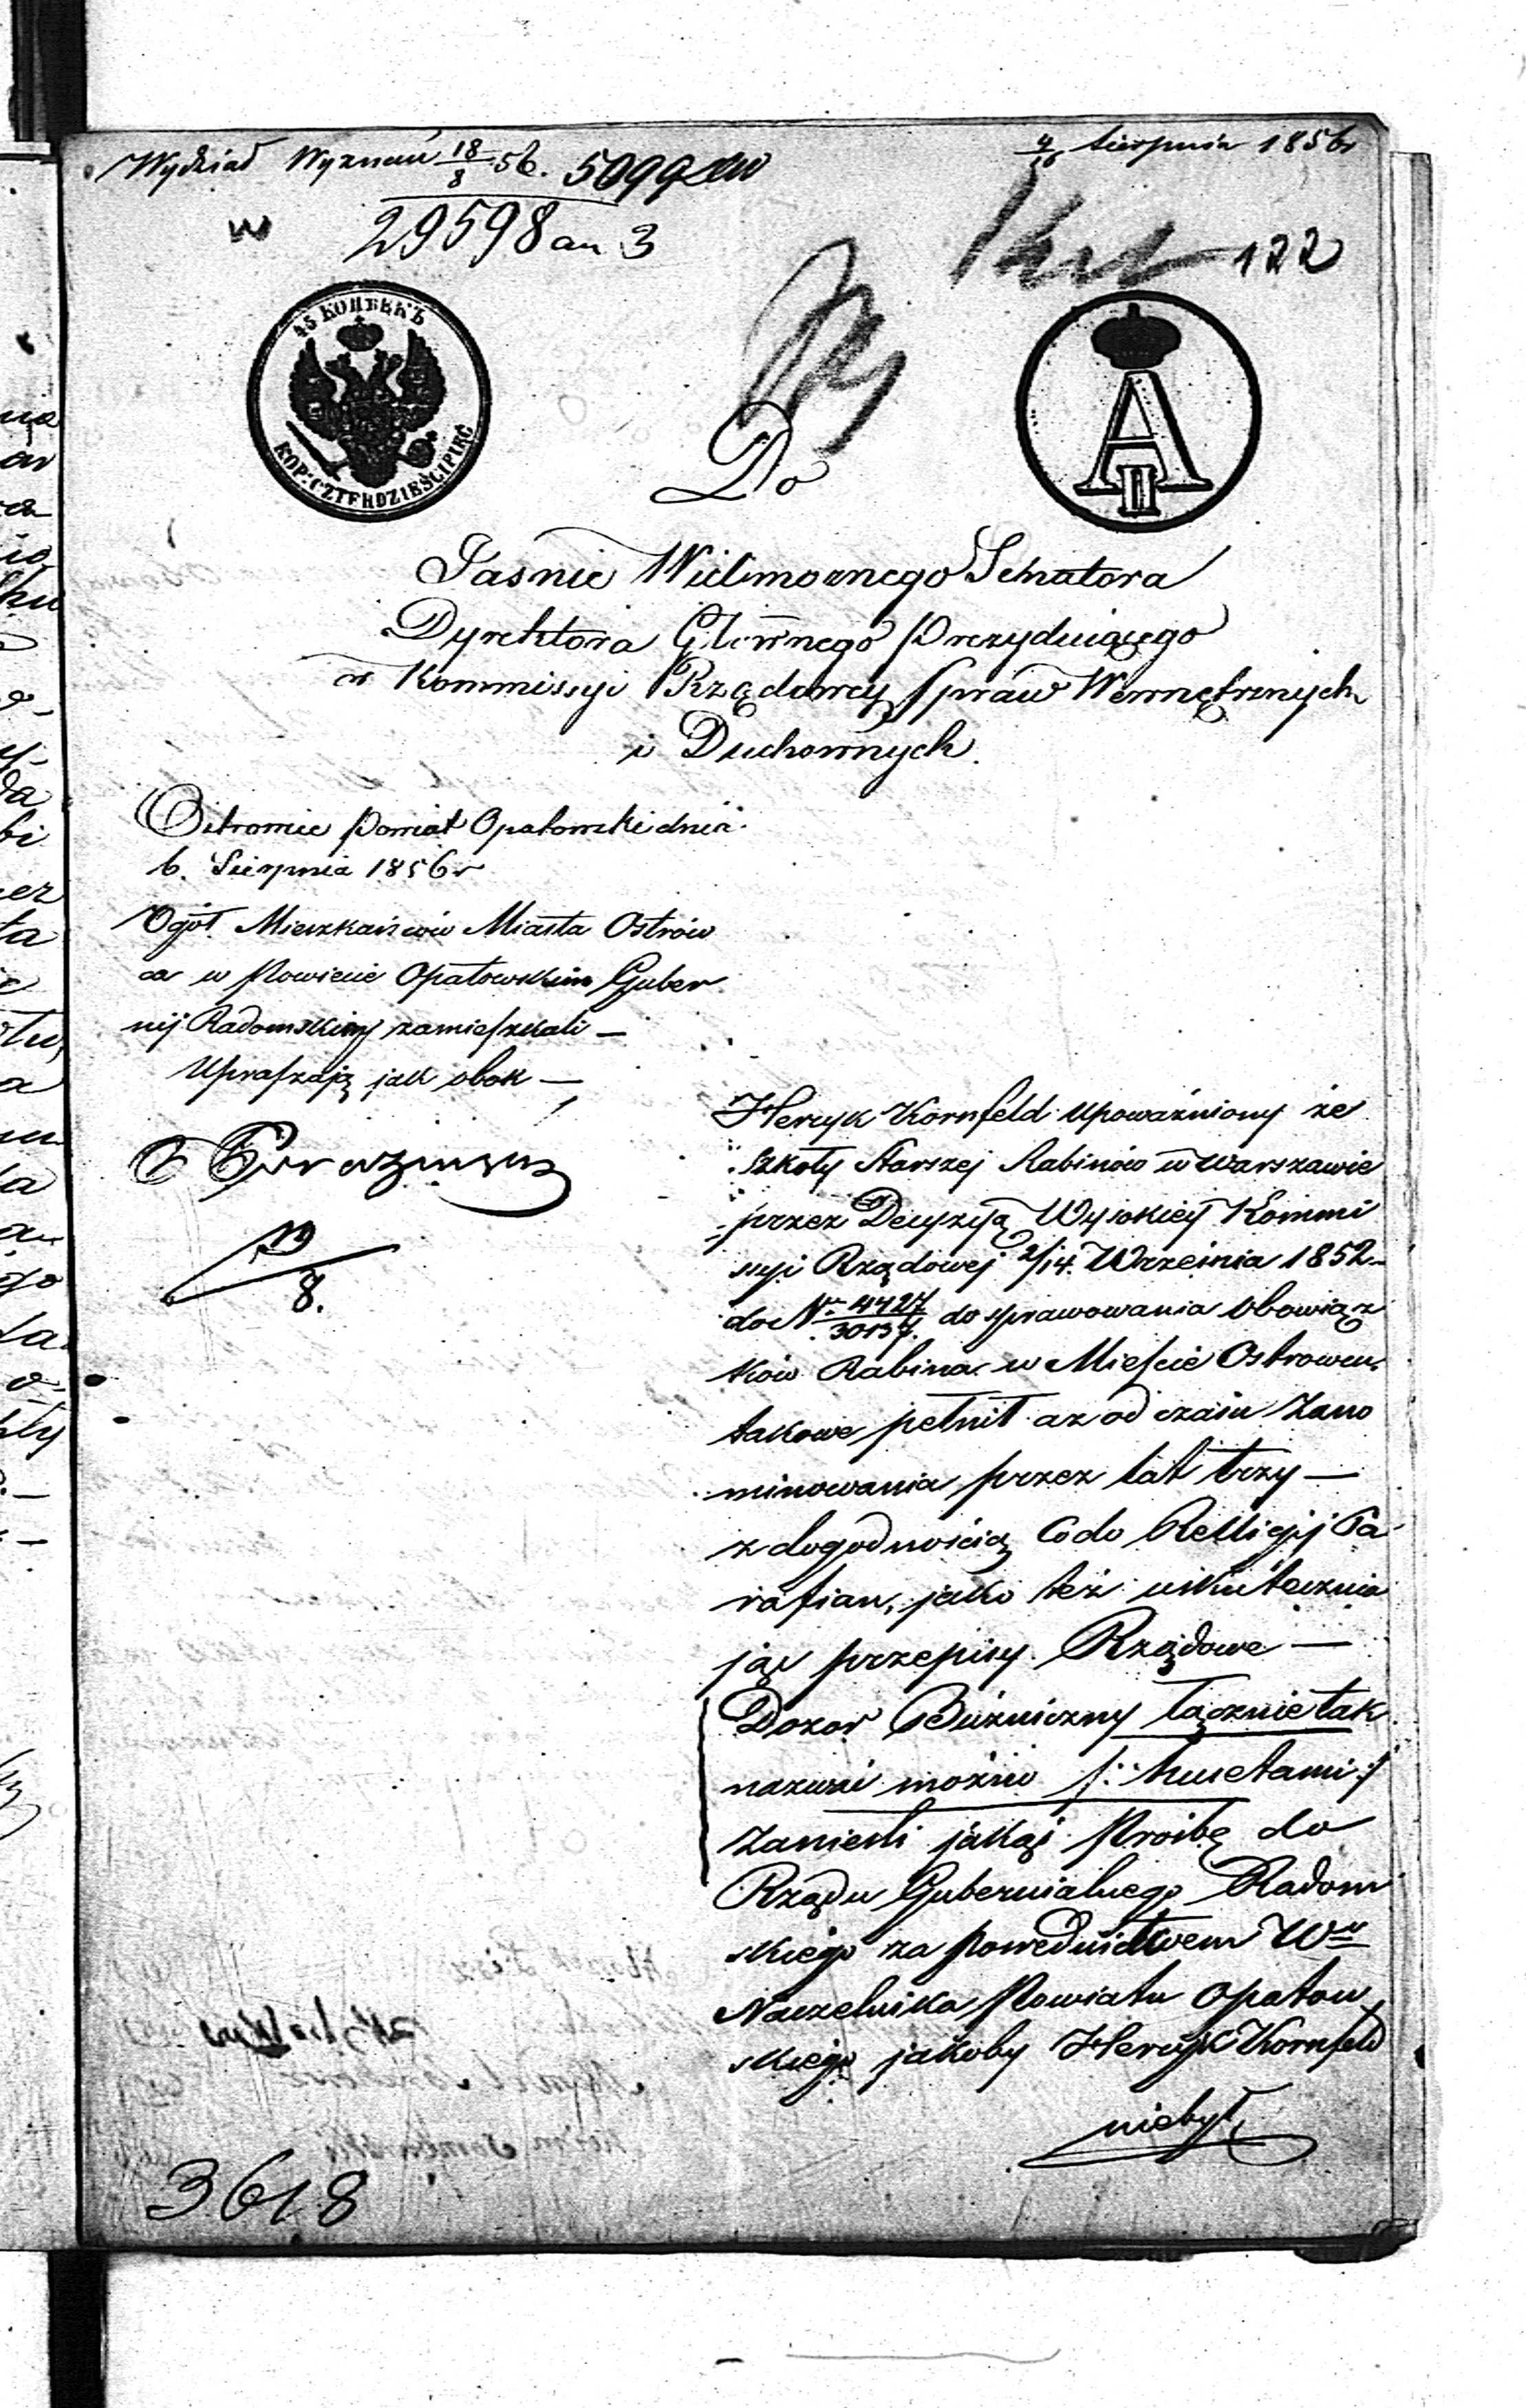 Wydział Wyznań 18/8 56. 5099
4/16 sierpnia 1856 r
29598 an 3
122
45 КОПѢЕКЪ
KOP: CZTERDZIEŚCI PIĘĆ
A II
Do
Jaśnie Wielmożnego Senatora
Dyrektora Głównego Prezydującego
w Kommissyi Rządowey Spraw Wewnętrznych
i Duchownych.
Ostrowiec Powiat Opatowski dnia
6. Sierpnia 1856 r
Ogół Mieszkańców Miasta Ostrow
ca w Powiecie Opatowskim Guber
nij Radomskiey zamieszkali —
Upraszają jak obok —
19/8.
Hercyk Kornfeld upoważniony ze
Szkoły Starszej Rabinów w Warszawie
przez Decyzyą Wysokiey Kommi
ssyi Rządowej 2/14. Września 1852
do Nr. 4427/30137. do sprawowania obowiąz
ków Rabina w Mieście Ostrowcu
takowe pełnił az od czasu zano
minowania przez lat trzy —
z dogodnością Co do Relligij Pa
rafian, jako też uskutecznia
jąc przepisy Rządowe —
Dozor Bużniczny łącznie tak
nazwać można /: :/
zanieśli jakąś Proźbę do
Rządu Gubernialnego Radom
skiego za powednictwem Wo
Naczelnika Powiatu Opatow
skiego jakoby Hercyk Kornfeld
niebył
3618